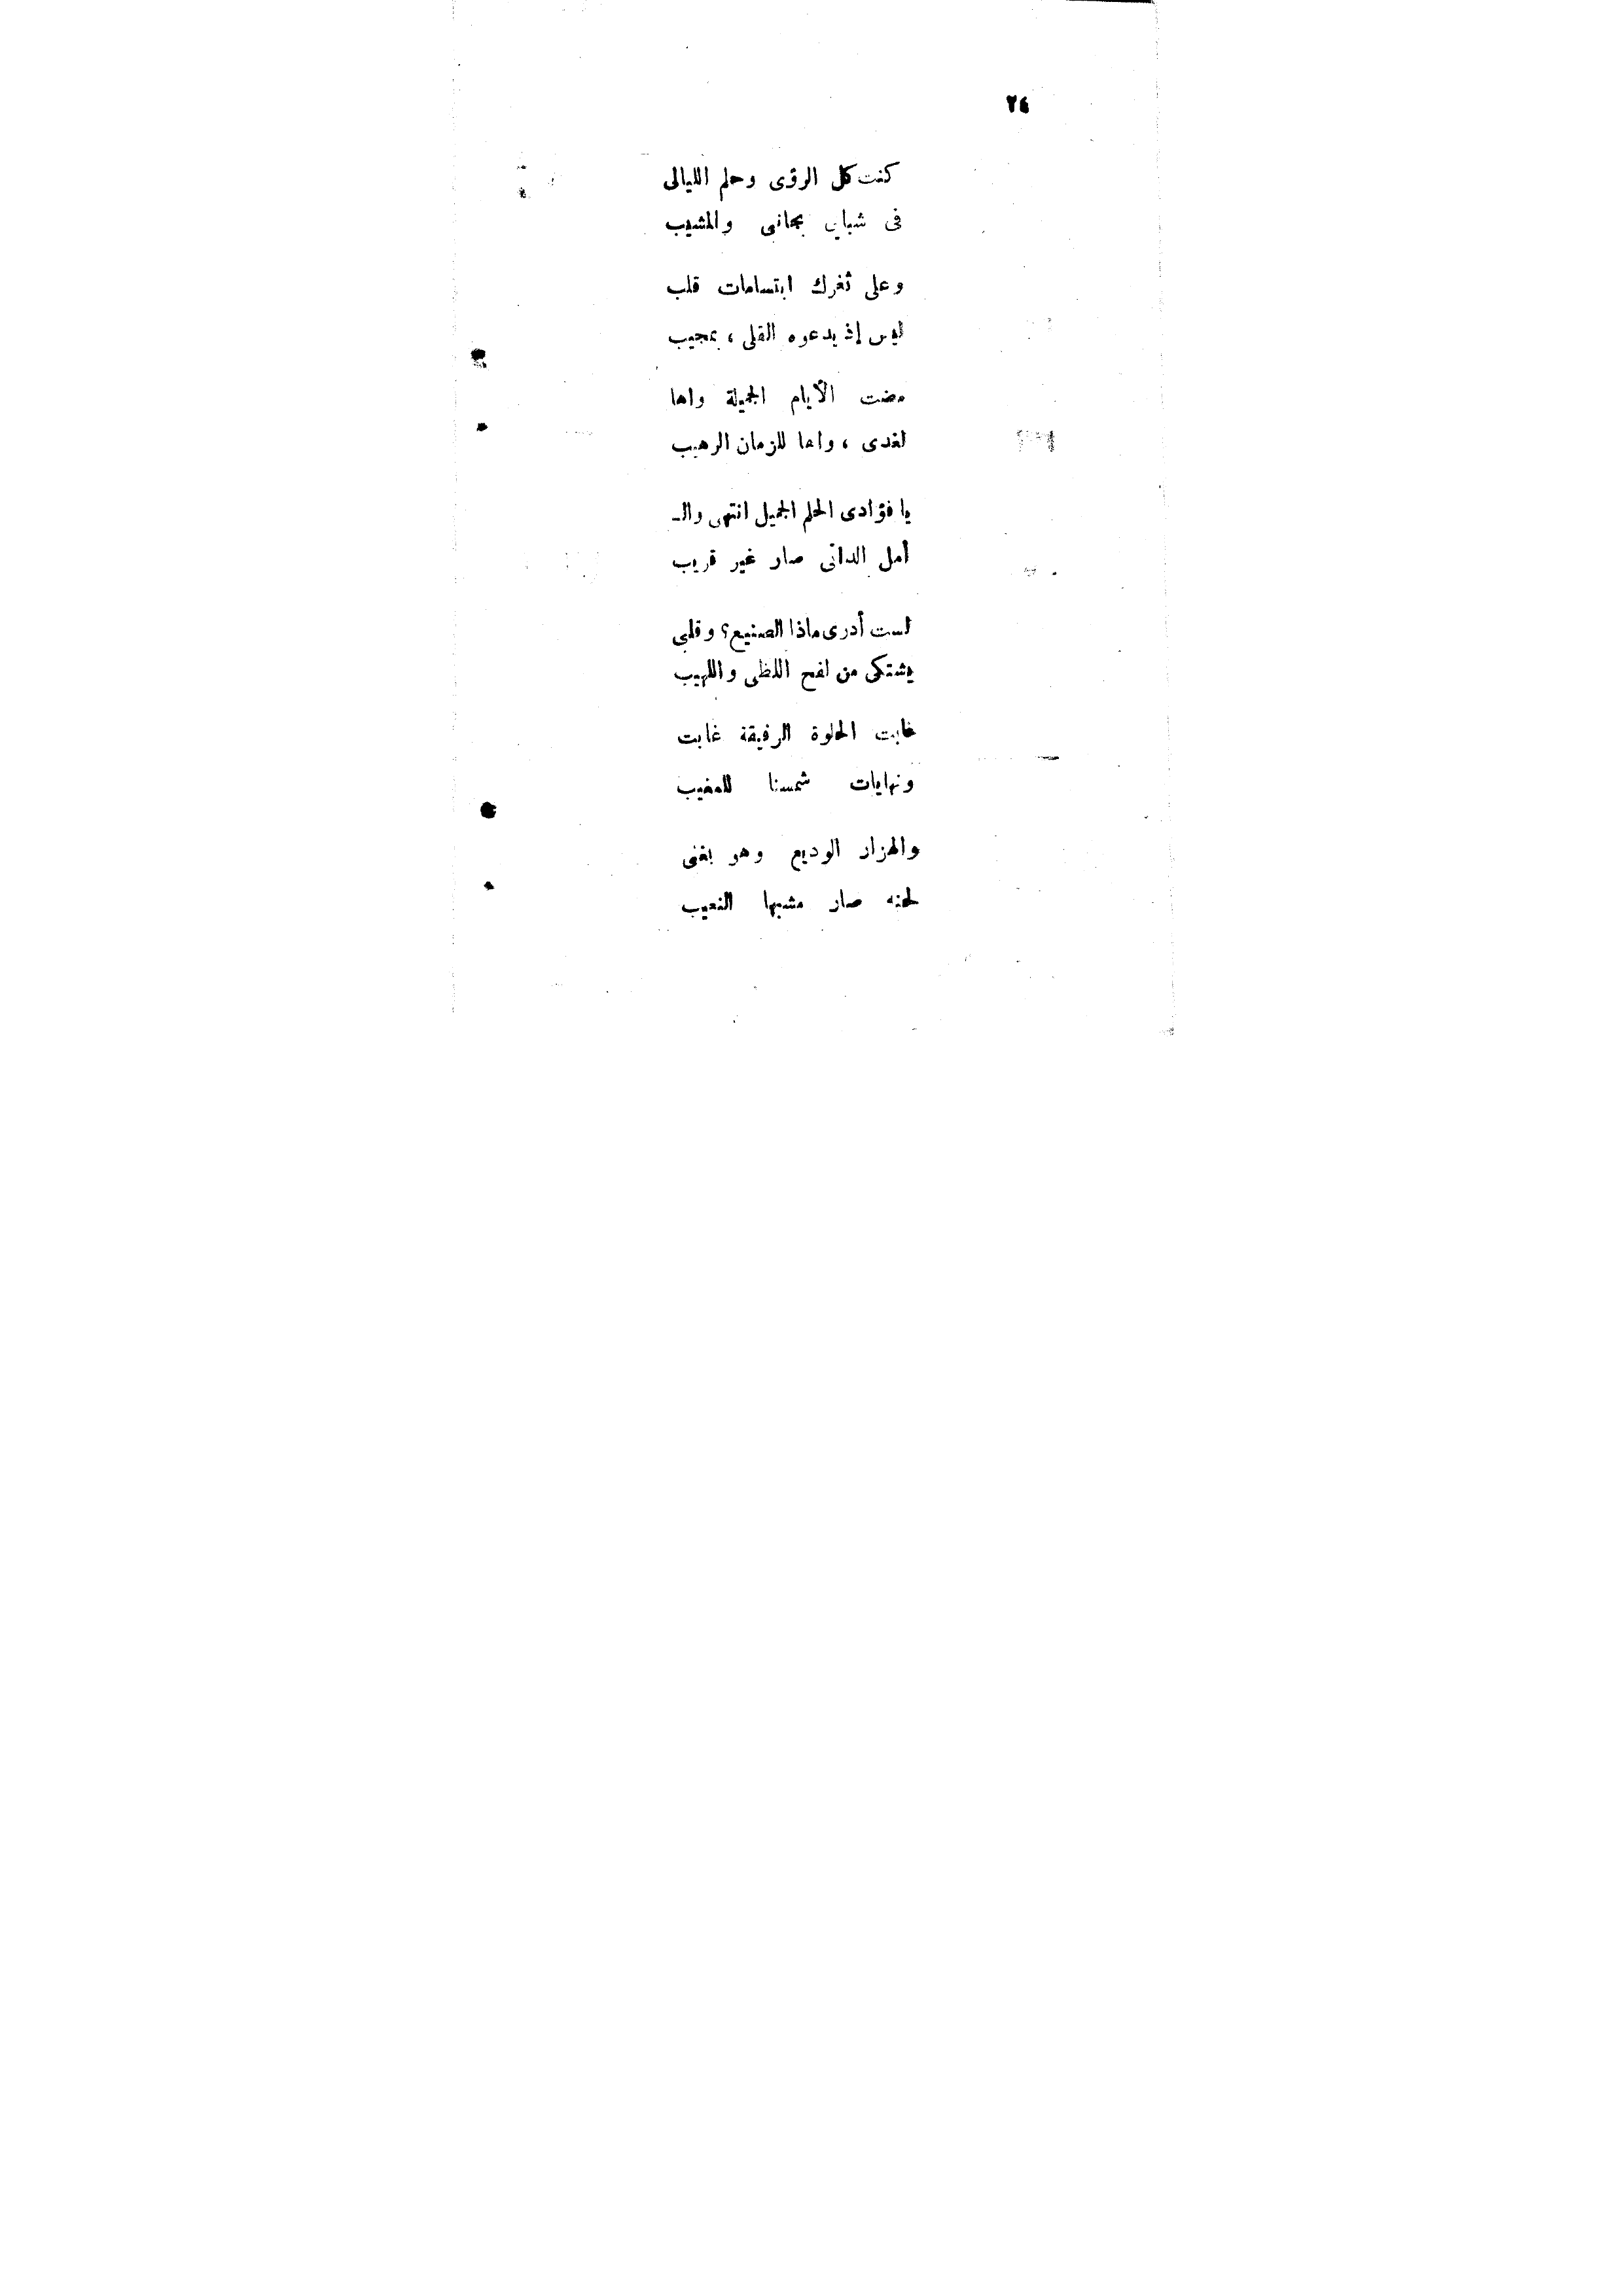 ٢٤
كنت كل الرؤى وحلم الليالى
فى شبابى بجانبى والمشيب
وعلى ثغرك ابتسامات قلب
ليس إذ يدعوه القلى ، بمجيب
مضت الأيام الجميلة واها
لغدى ، واها للزمان الرهيب
يا فؤادى الحلم الجميل انتهى والـ
أمل الدانى صار غير قريب
لست أدرى ماذا الصنيع؟ وقلبى
يشتكى من لفح اللظى واللهيب
غابت الحلوة الرفيقة غابت
ونهايات شمسنا للمغيب
والهزار الوديع وهو يغنى
لحنه صار مشبها النعيب